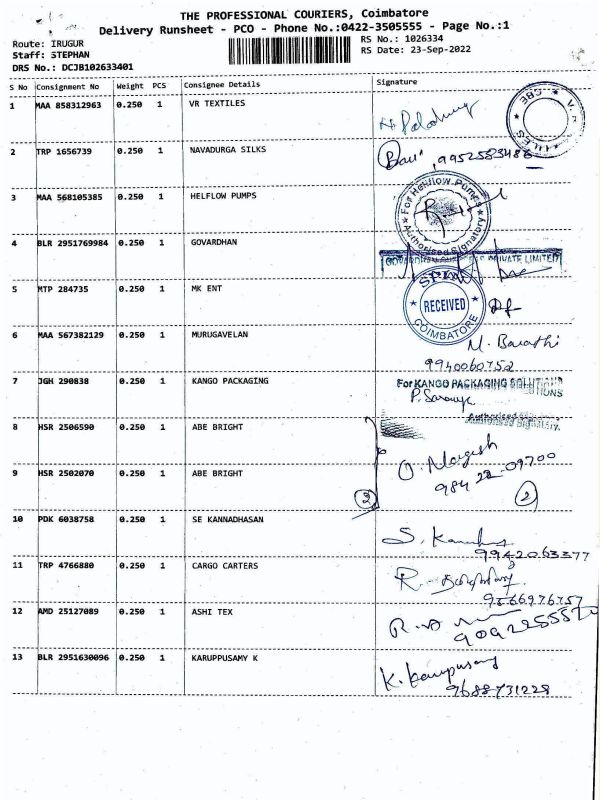 THE PROFESSIONAL COURIERS, Coimbatore
Delivery Runsheet - PCO - Phone No.:0422-3505555 - Page No.:1
Route: IRUGUR RS No.: 1026334
Staff: STEPHAN RS Date: 23-Sep-2022
DRS No.: DCJB102633401
S No Consignment No Weight PCS Consignee Details Signature
1 MAA 858312963 0.250 1 VR TEXTILES
2 TRP 1656739 0.250 1 NAVADURGA SILKS 9952583486
3 MAA 568105385 0.250 1 HELFLOW PUMPS For Helflow Pumps Authorised Signatory
4 BLR 2951769984 0.250 1 GOVARDHAN PRIVATE LIMITED
5 MTP 284735 0.250 1 MK ENT RECEIVED COIMBATORE
6 MAA 567382129 0.250 1 MURUGAVELAN M. Barathi
9940060752
7 JGH 290838 0.250 1 KANGO PACKAGING For KANGO PACKAGING SOLUTIONS
Authorised Signatory.
8 HSR 2506590 0.250 1 ABE BRIGHT
9 HSR 2502070 0.250 1 ABE BRIGHT 98422-09700
2 2
10 PDK 6038758 0.250 1 SE KANNADHASAN
9942063377
11 TRP 4766880 0.250 1 CARGO CARTERS
9566976757
12 AMD 25127089 0.250 1 ASHI TEX
13 BLR 2951630096 0.250 1 KARUPPUSAMY K K. Karupusamy
9688731228